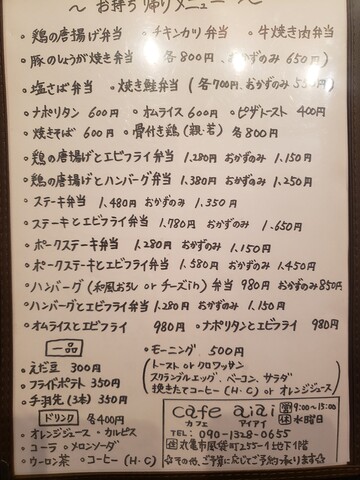 ～ お持ち帰りメニュー ～
・鶏の唐揚げ弁当 ・チキンカツ弁当 ・牛焼き肉弁当
・豚のしょうが焼き弁当 (各800円、おかずのみ650円)
・塩さば弁当 ・焼き鮭弁当 (各700円、おかずのみ550円)
・ナポリタン 600円 ・オムライス 600円 ・ピザトースト 400円
・焼きそば 600円 ・骨付き鶏(親・若) 各800円
・鶏の唐揚げとエビフライ弁当 1,280円 おかずのみ 1,150円
・鶏の唐揚げとハンバーグ弁当 1,380円 おかずのみ 1,250円
・ステーキ弁当 1,480円 おかずのみ 1,350円
・ステーキとエビフライ弁当 1,780円 おかずのみ 1,650円
・ポークステーキ弁当 1,280円 おかずのみ 1,150円
・ポークステーキとエビフライ弁当 1,580円 おかずのみ 1,450円
・ハンバーグ (和風おろし or チーズin) 弁当 980円 おかずのみ850円
・ハンバーグとエビフライ弁当 1,280円 おかずのみ 1,150円
・オムライスとエビフライ 980円 ・ナポリタンとエビフライ 980円
一品
・えだ豆 300円
・フライドポテト 350円
・手羽先(3本) 350円
ドリンク 各400円
・オレンジジュース ・カルピス
・コーラ ・メロンソーダ
・ウーロン茶 ・コーヒー (H・C)
・モーニング 500円
(トースト or クロワッサン
スクランブルエッグ、ベーコン、サラダ
挽きたてコーヒー(H・C) or オレンジジュース)
cafe aiai
カフェ アイアイ
営 9:00~15:00
休 水曜日
TEL: 090-1328-0655
住 丸亀市風袋町255-1 地下1階
☆その他、ご予算に応じてご予約承ります☆